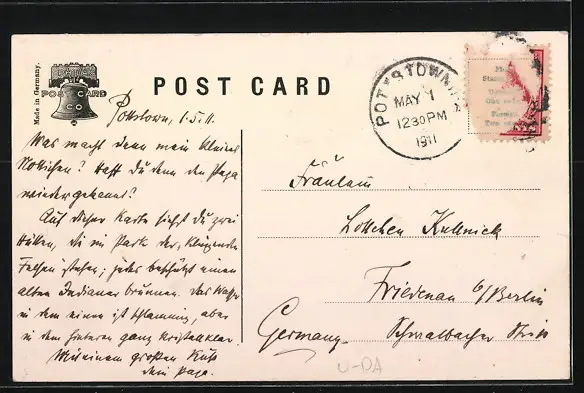 Made in Germany.
POST CARD
CO
POST CARD
POTTSTOWN
MAY 1
1230 PM
1911
Pottstown, 1.5.11.
Was macht denn mein kleines
Lottchen? Hast Du denn den Papa
wiedererkannt?
Auf dieser Karte siehst Du zwei
Hütten, die im Park der, klingenden
Felsen stehen; jedes beschützt einen
alten Indianer brunnen. Das Wasser
in dem einen ist schlammig, aber
in dem hinteren ganz kristallklar.
Mit einem großen Kuß
dein Papa.
Fräulein
Lottchen Kullnick
Friedenau b/Berlin
Germany. Schwalbacher Str.
U-DA